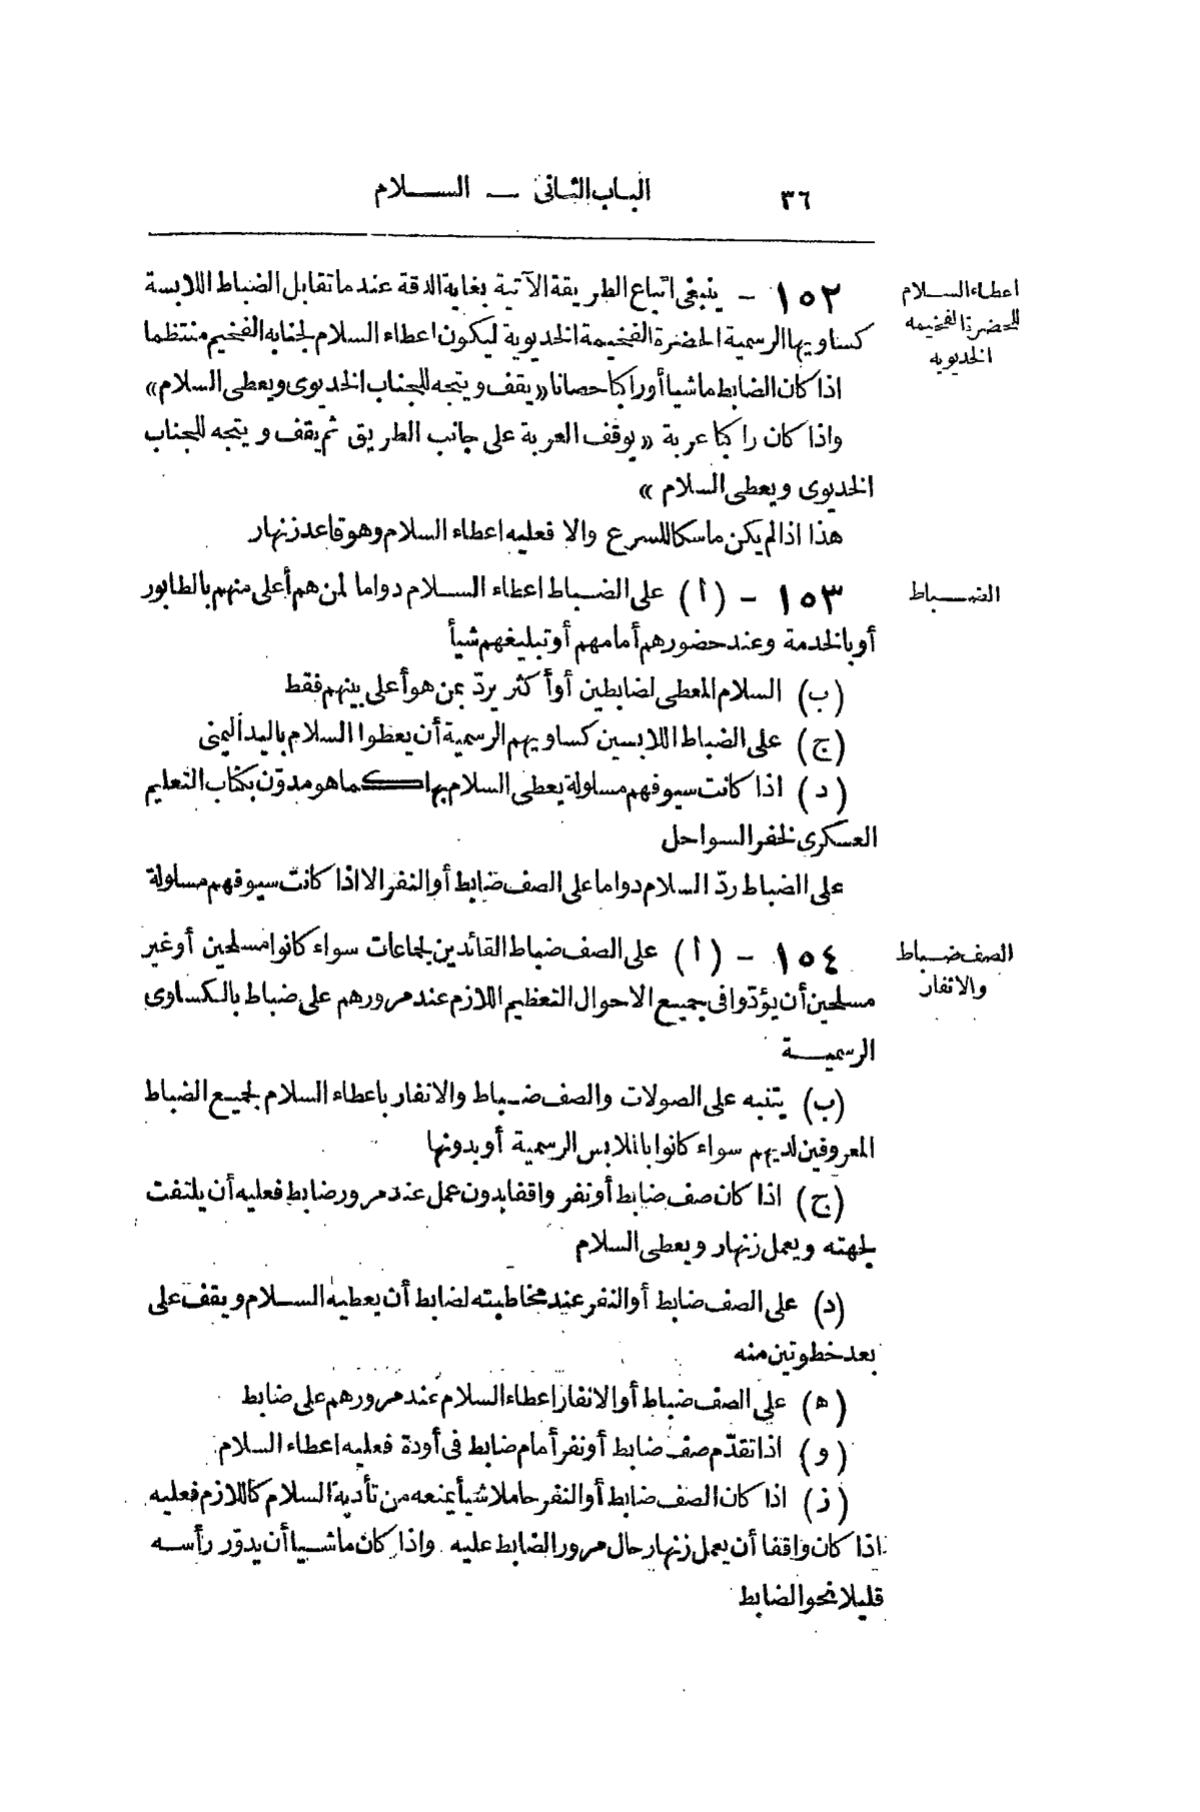 ٣٦ الباب الثانى — الســلام
اعطاء السلام
للحضرة الفخيمه
الخديويه
١٥٢ - ينبغى اتباع الطريقة الآتية بغاية الدقة عندما تقابل الضباط اللابسة
كساويها الرسمية الحضرة الفخيمة الخديوية ليكون اعطاء السلام لجنابه الفخيم منتظما
اذا كان الضابط ماشيا أو راكبا حصانا «يقف ويتجه للجناب الخديوى ويعطى السلام»
واذا كان راكبا عربة «يوقف العربة على جانب الطريق ثم يقف ويتجه للجناب
الخديوى ويعطى السلام»
هذا اذا لم يكن ماسكا للسرع والا فعليه اعطاء السلام وهو قاعد زنهار
الضــباط
١٥٣ - (أ) على الضباط اعطاء السلام دواما لمن هم أعلى منهم بالطابور
أو بالخدمة وعند حضورهم أمامهم أو تبليغهم شيأ
(ب) السلام المعطى لضابطين أو أكثر يردّ بمن هو أعلى بينهم فقط
(ج) على الضباط اللابسين كساويهم الرسمية أن يعطوا السلام باليد اليمنى
(د) اذا كانت سيوفهم مسلولة يعطى السلام بها كما هو مدوّن بكتاب التعليم
العسكرى لخفر السواحل
على الضباط ردّ السلام دواما على الصف ضابط أو النفر الا اذا كانت سيوفهم مسلولة
الصف ضباط
والانفار
١٥٤ - (أ) على الصف ضباط القائدين لجماعات سواء كانوا مسلحين أو غير
مسلحين أن يؤدّوا فى جميع الاحوال التعظيم اللازم عند مرورهم على ضباط بالكساوى
الرسميــة
(ب) يتنبه على الصولات والصف ضباط والانفار باعطاء السلام لجميع الضباط
المعروفين لديهم سواء كانوا بالملابس الرسمية أو بدونها
(ج) اذا كان صف ضابط أو نفر واقفا بدون عمل عند مرور ضابط فعليه أن يلتفت
لجهته ويعمل زنهار ويعطى السلام
(د) على الصف ضابط أو النفر عند مخاطبته لضابط أن يعطيه السلام ويقف على
بعد خطوتين منه
(ه) على الصف ضباط أو الانفار اعطاء السلام عند مرورهم على ضابط
(و) اذا تقدّم صف ضابط أو نفر أمام ضابط فى أودة فعليه اعطاء السلام
(ز) اذا كان الصف ضابط أو النفر حاملا شيأ يمنعه من تأدية السلام كاللازم فعليه
اذا كان واقفا أن يعمل زنهار حال مرور الضابط عليه واذا كان ماشيا أن يدوّر رأسه
قليلا نحو الضابط